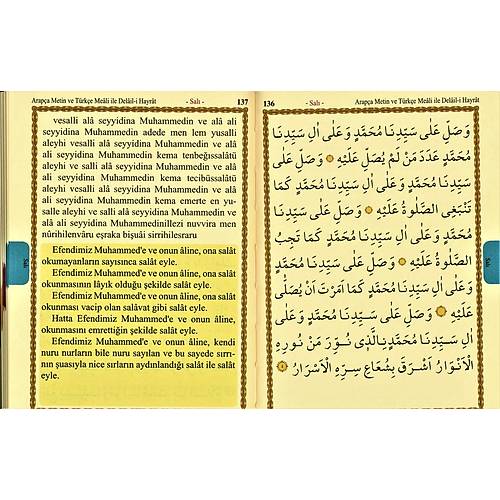 Arapça Metin ve Türkçe Meâli ile Delâil-i Hayrât - Salı - 137
vesalli alâ seyyidina Muhammedin ve alâ ali
seyyidina Muhammedin adede men lem yusalli
aleyhi vesalli alâ seyyidina Muhammedin ve alâ
ali seyyidina Muhammedin kema tenbeğıssalâtü
aleyhi ve salli alâ seyyidina Muhammedin ve alâ
ali seyyidina Muhammedin kema tecibüssalâtü
aleyhi vesalli alâ seyyidina Muhammedin ve alâ
ali seyyidina Muhammedin kema emerte en yu-
salle aleyhi ve salli alâ seyyidina Muhammedin ve
alâ ali seyyidina Muhammedinillezi nuvvira men
nûrihilenvâru eşraka bişuâi sirrihilesraru
Efendimiz Muhammed'e ve onun âline, ona salât
okumayanların sayısınca salât eyle.
Efendimiz Muhammed'e ve onun âline, ona salât
okunmasının lâyık olduğu şekilde salât eyle.
Efendimiz Muhammed'e ve onun âline, ona salât
okunması vacip olan salâvat gibi salât eyle.
Hatta Efendimiz Muhammed'e ve onun âline,
okunmasını emrettiğin şekilde salât eyle.
Efendimiz Muhammed'e ve onun âline, kendi
nuru nurların bile nuru sayılan ve bu sayede sırrı-
nın şuasıyla nice sırların aydınlandığı salât ile salât
eyle.
Salı
136 - Salı - Arapça Metin ve Türkçe Meâli ile Delâil-i Hayrât
وَصَلِّ عَلٰى سَيِّدِنَا مُحَمَّدٍ وَعَلٰى اٰلِ سَيِّدِنَا
مُحَمَّدٍ عَدَدَ مَنْ لَمْ يُصَلِّ عَلَيْهِ وَصَلِّ عَلٰى
سَيِّدِنَا مُحَمَّدٍ وَعَلٰى اٰلِ سَيِّدِنَا مُحَمَّدٍ كَمَا
تَنْبَغِى الصَّلٰوةُ عَلَيْهِ وَصَلِّ عَلٰى سَيِّدِنَا
مُحَمَّدٍ وَعَلٰى اٰلِ سَيِّدِنَا مُحَمَّدٍ كَمَا تَجِبُ
الصَّلٰوةُ عَلَيْهِ وَصَلِّ عَلٰى سَيِّدِنَا مُحَمَّدٍ
وَعَلٰى اٰلِ سَيِّدِنَا مُحَمَّدٍ كَمَا اَمَرْتَ اَنْ يُصَلّٰى
عَلَيْهِ وَصَلِّ عَلٰى سَيِّدِنَا مُحَمَّدٍ وَعَلٰى
اٰلِ سَيِّدِنَا مُحَمَّدٍ ۨالَّذِى نُوِّرَ مَنْ نُورِهِ
الْاَنْوَارُ اَشْرَقَ بِشُعَاعِ سِرِّهِ الْاَسْرَارُ
Salı